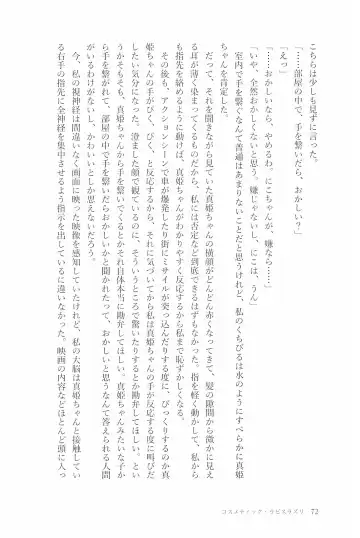 こちらは少しも見ずに言った。
「……部屋の中で、手を繋いだら、おかしい？」
「えっ」
「……おかしいなら、やめるわ。にこちゃんが、嫌なら……」
「いや、全然おかしくないと思う。嫌じゃないし、にこは、うん」
　室内で手を繋ぐなんて普通はあまりないことだと思うけれど、私のくちびるは水のようにすべらかに真姫
ちゃんを肯定した。
　だって、それを聞きながら見ていた真姫ちゃんの横顔がどんどん赤くなってきて、髪の隙間から微かに見え
る耳が薄く染まってくるものだから、私には否定など到底できるはずもなかった。指を軽く動かして、
も指先を絡めるように動けば、真姫ちゃんがわかりやすく反応するから私まで恥ずかしくなる。
　その後も、アクションシーンで車が爆発したり街にミサイルが突っ込んだりする度に、びっくりするのか真
姫ちゃんの手がびく、びく、と反応するから、それに気づいてから私は真姫ちゃんの手が反応する度に叫びだ
したい気分になった。澄ました顔で観ているのに、そういうところで驚いたりするとか勘弁してほしい。とい
うかそもそも、真姫ちゃんから手を繋いでくるとかそれ自体本当に勘弁してほしい。真姫ちゃんみたいな子か
ら手を繋がれて、部屋の中で手を繋いだらおかしいかと聞かれたって、おかしいと思うなんて答えられる人間
がいるわけがないし、かわいいとしか思えないだろう。
　今、私の視神経は間違いなく画面に映った映像を感知していたけれど、私の大脳は真姫ちゃんと接触してい
る右手の指先に全神経を集中させるよう指示を出しているに違いなかった。映画の内容などほとんど頭に入っ
コスメティック・ラピスラズリ　72